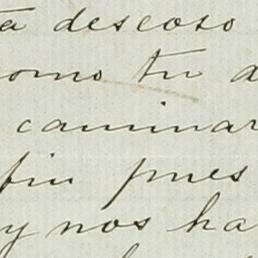 ta deseoso
como tu a
caminar
fin pues
y nos ha